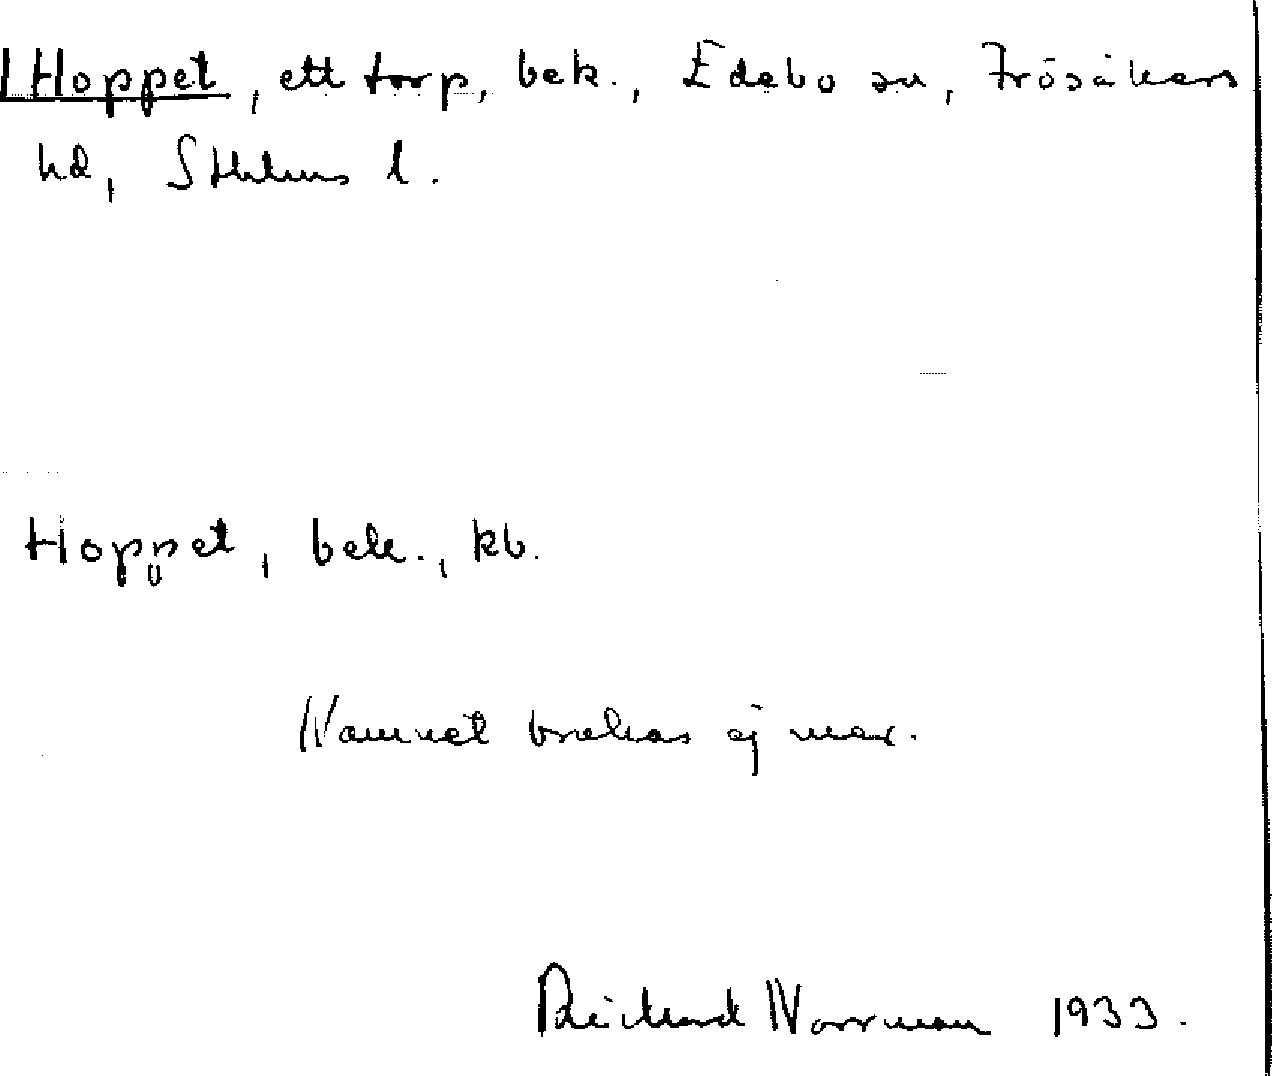 Hoppet, ett torp, bek., Edebo sn, Frösåkers
hd, Sthlms l.
Hoppet, bek., kb.
Namnet brukas ej mer.
Rickard Norrman 1933.